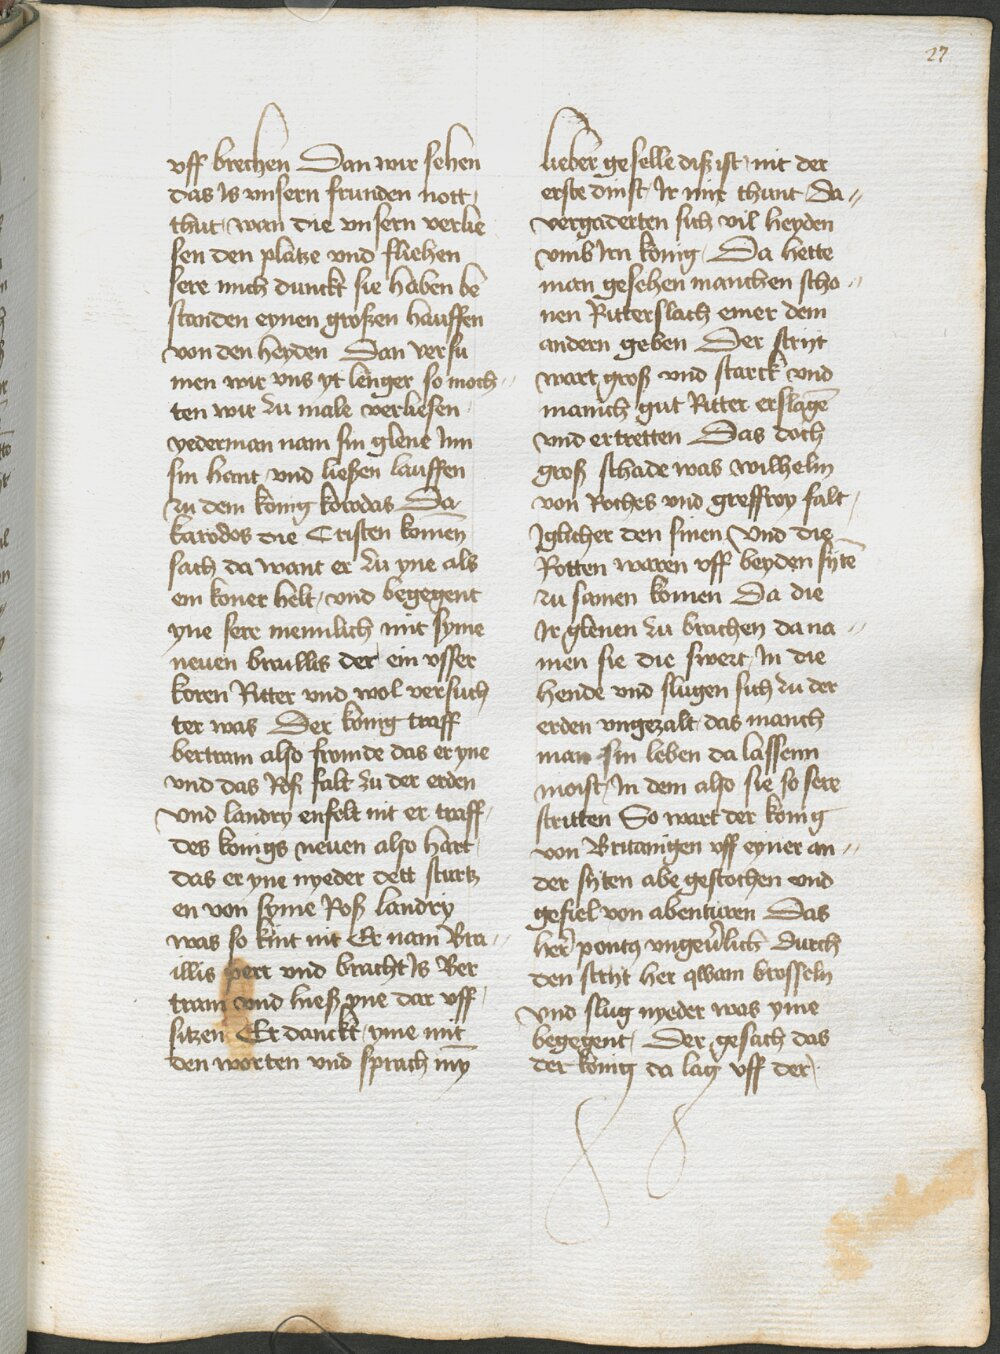 27
vff brechen Dan wir sehen
das Is vnsern frunden nott
thut / wan die vnsern verlie
sen den platze vnd fliehen
sere mich dunckt sie haben be
standen eynen großen hauffen
von den heyden Dan versu
men wir vns yt lenger so moch //
ten wir zu male verliesen
yederman nam sin glene Inn
sin hant vnd ließen lauffen
zu dem konig korodas Da
karodos die Cristen komen
sach da want er zu yne als
ein koner helt / vnd begegent
yne sere menlich mit syme
neuen braillis der ein vsser
koren Ritter vnd wol versuch
ter was Der konig traff
bertram also fromde das er yne
vnd das Roß falt zu der erden
vnd landry enfelt nit er traff /
des konigs neuen also hart
das er yne nyeder dett sturtz
en von syme Roß landry
was so kint nit Er nam Bra //
illis pert vnd bracht Is Ber
tram vnd hieß yne dar vff /
sitzen Er danckt yme mit
den worten vnd sprach my
lieber geselle diß ist nit der
erste dinst Ir mir thunt Da //
vergaderten sich vil heyden
vmb Irn konig / Da hette
man gesehen manchen scho //
nen Ritterslach einer dem
andern geben Der strijt
wart groß vnd starck vnd
manich gut Ritter erslagē
vnd ertretten Das doch
groß schade was wilhelm
von Roches vnd greffroy falt /
Iglicher den sinen vnd die
Rotten waren vff beyden sijtē
zu samen komen Da die
Ir glenen zu brachen da na //
men sie die swert In die
hende vnd slugen sich zu der
erden vngezalt das manch
man sin leben da lassenn
moist In dem also sie so sere
stritten So wart der konig
von Britanigen vff eyner an //
der sijten abe gestochen vnd
gefiel von abenturen Das
her pontus vngeuerlich durch
den strijt her qwam brosseln
vnd slug nyeder was yme
begegent / Der gesach das
der konig da lag vff der